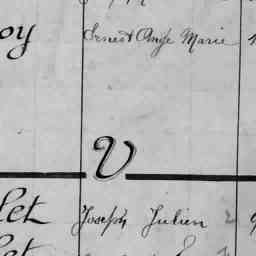 oy Ernest Ange Marie
V
let Joseph Julien
let